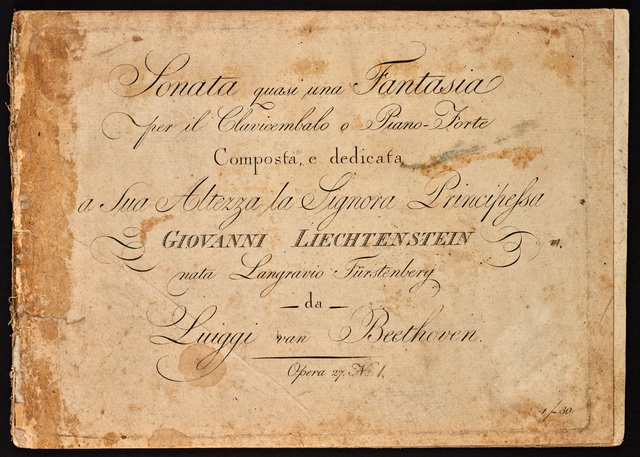 Sonata quasi una Fantasia
per il Clavicembalo o Piano-Forte
Composta, e dedicata
a Sua Altezza la Signora Principessa
GIOVANNI LIECHTENSTEIN
nata Langravio Fürstenberg
— da —
Luiggi van Beethoven.
Opera 27. No. 1.
1 f 30